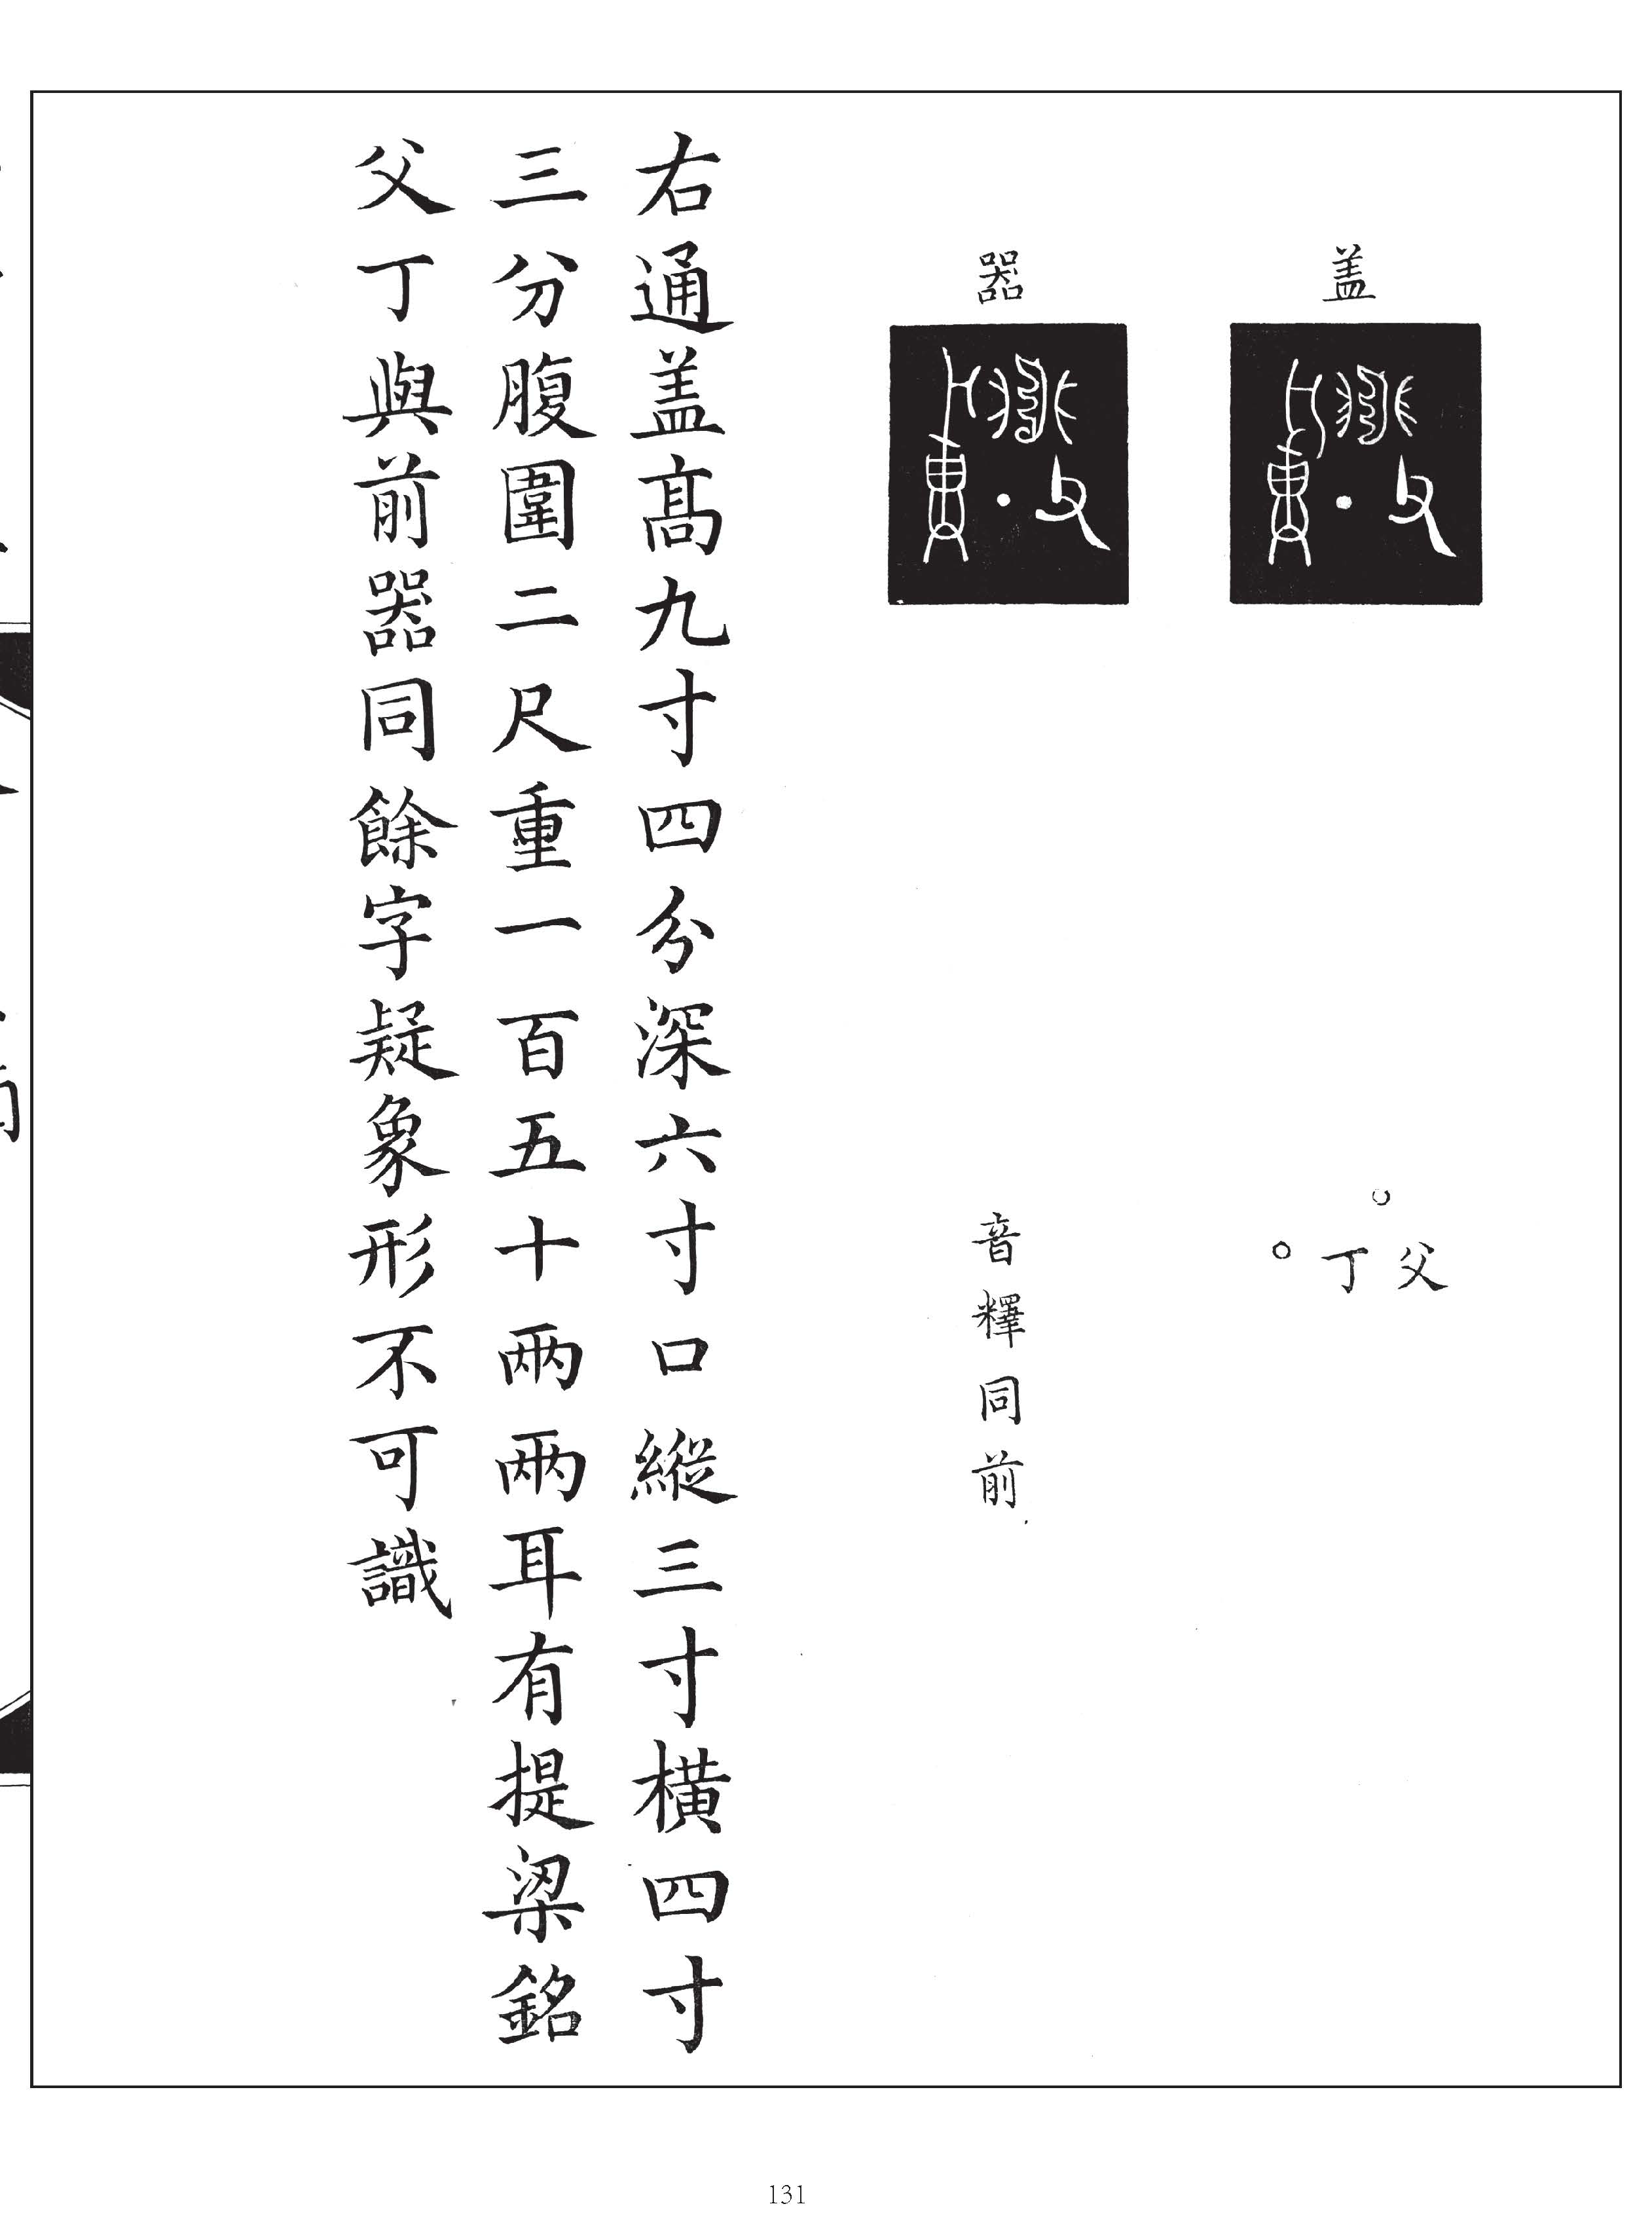 盖
○
父
丁
○
器
音釋同前
右通盖髙九寸四分深六寸口縱三寸橫四寸
三分腹圍二尺重一百五十兩兩耳有提梁銘
父丁與前器同餘字疑象形不可識
131